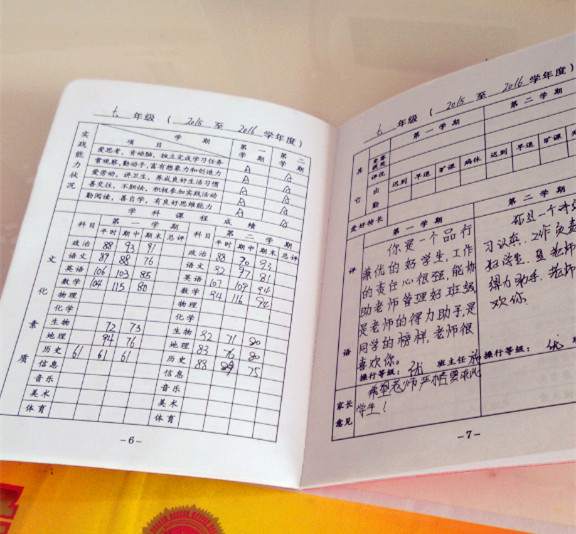 七 年级 ( 2015 至 2016 学年度)
实践能力状况
学期
项目
第一学期
第二学期
爱思考，肯动脑，独立完成学习任务 A A
常观察，勤动手，富有想象力和创造力 A A
爱劳动，讲卫生，养成良好生活习惯 A A
善交往，不胆怯，积极参加实践活动 A A
勤阅读，善自学，有良好思维能力 A A
文化素质
学科课程成绩
科目 第一学期 科目 第二学期
平时 期中 期末 总评 平时 期中 期末 总评
政治 88 93 97 政治 88 90 93
语文 89 88 76 语文 82 97 81
英语 106 103 85 英语 107 109 94
数学 104 115 80 数学 94 116
物理 物理
化学 化学
生物 72 73 生物 82 71 80
地理 94 76 地理 83 76 80
历史 61 61 61 历史 88 75
信息 信息
音乐 音乐
美术 美术
体育 体育
-6-
七 年级 ( 2015 至 2016 学年度)
第一学期 第二学期
其它
出勤
迟到 早退 旷课 病休 迟到 早退 旷课
爱好特长
评语
第一学期
你是一个品行
兼优的好学生，工作
的责任心很强，能协
助老师管理好班级
是老师的得力助手，是
同学的榜样，老师很
喜欢你。
操行等级: 优 班主任
第二学期
你是一个
习认真，工作负责
好学生，是老师
得力助手，老师
欢你
操行等级: 优 班
家长意见
希望老师严格要求
学生！
-7-